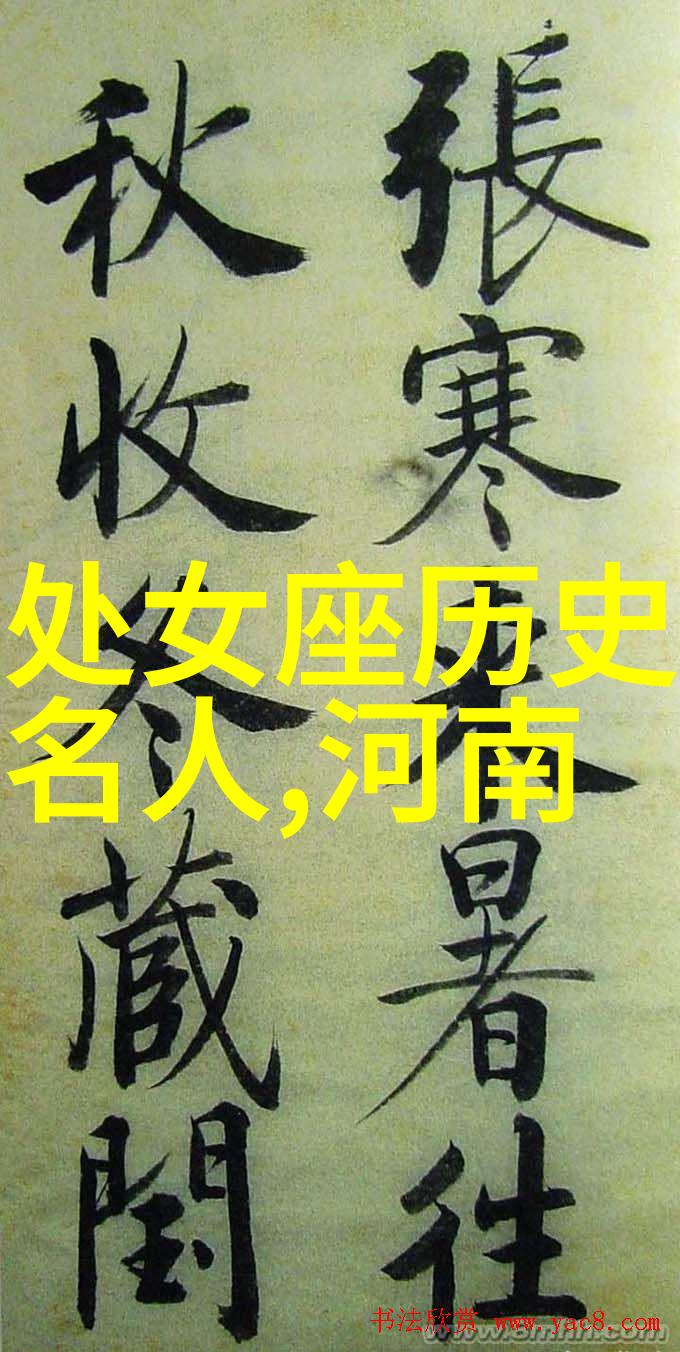 張寒來暑往
秋收冬蔵閏
处女座历史
名人,河南
书法欣赏 www.yac8.com